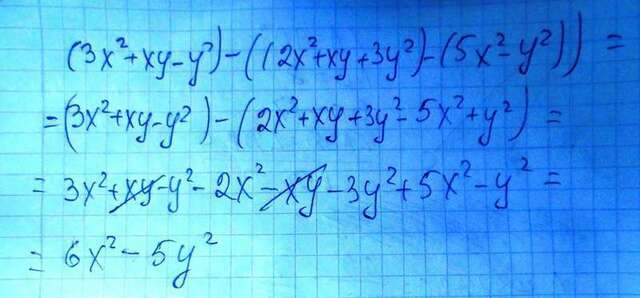 (3x²+xy-y²)-((2x²+xy+3y²)-(5x²-y²)) =
=(3x²+xy-y²)-(2x²+xy+3y²-5x²+y²) =
= 3x²+xy-y²-2x²-xy-3y²+5x²-y² =
= 6x²-5y²